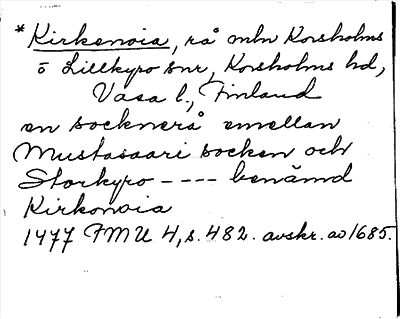 * Kirkonoia, rå mln Korsholms
o Lillkyro snr, Korsholms hd,
Vasa l., Finland
en socknerå emellan
Mustasaari socken och
Storkyro - - - - benämd
Kirkonoia
1477 FMU 4, s. 482. avskr. av 1685.